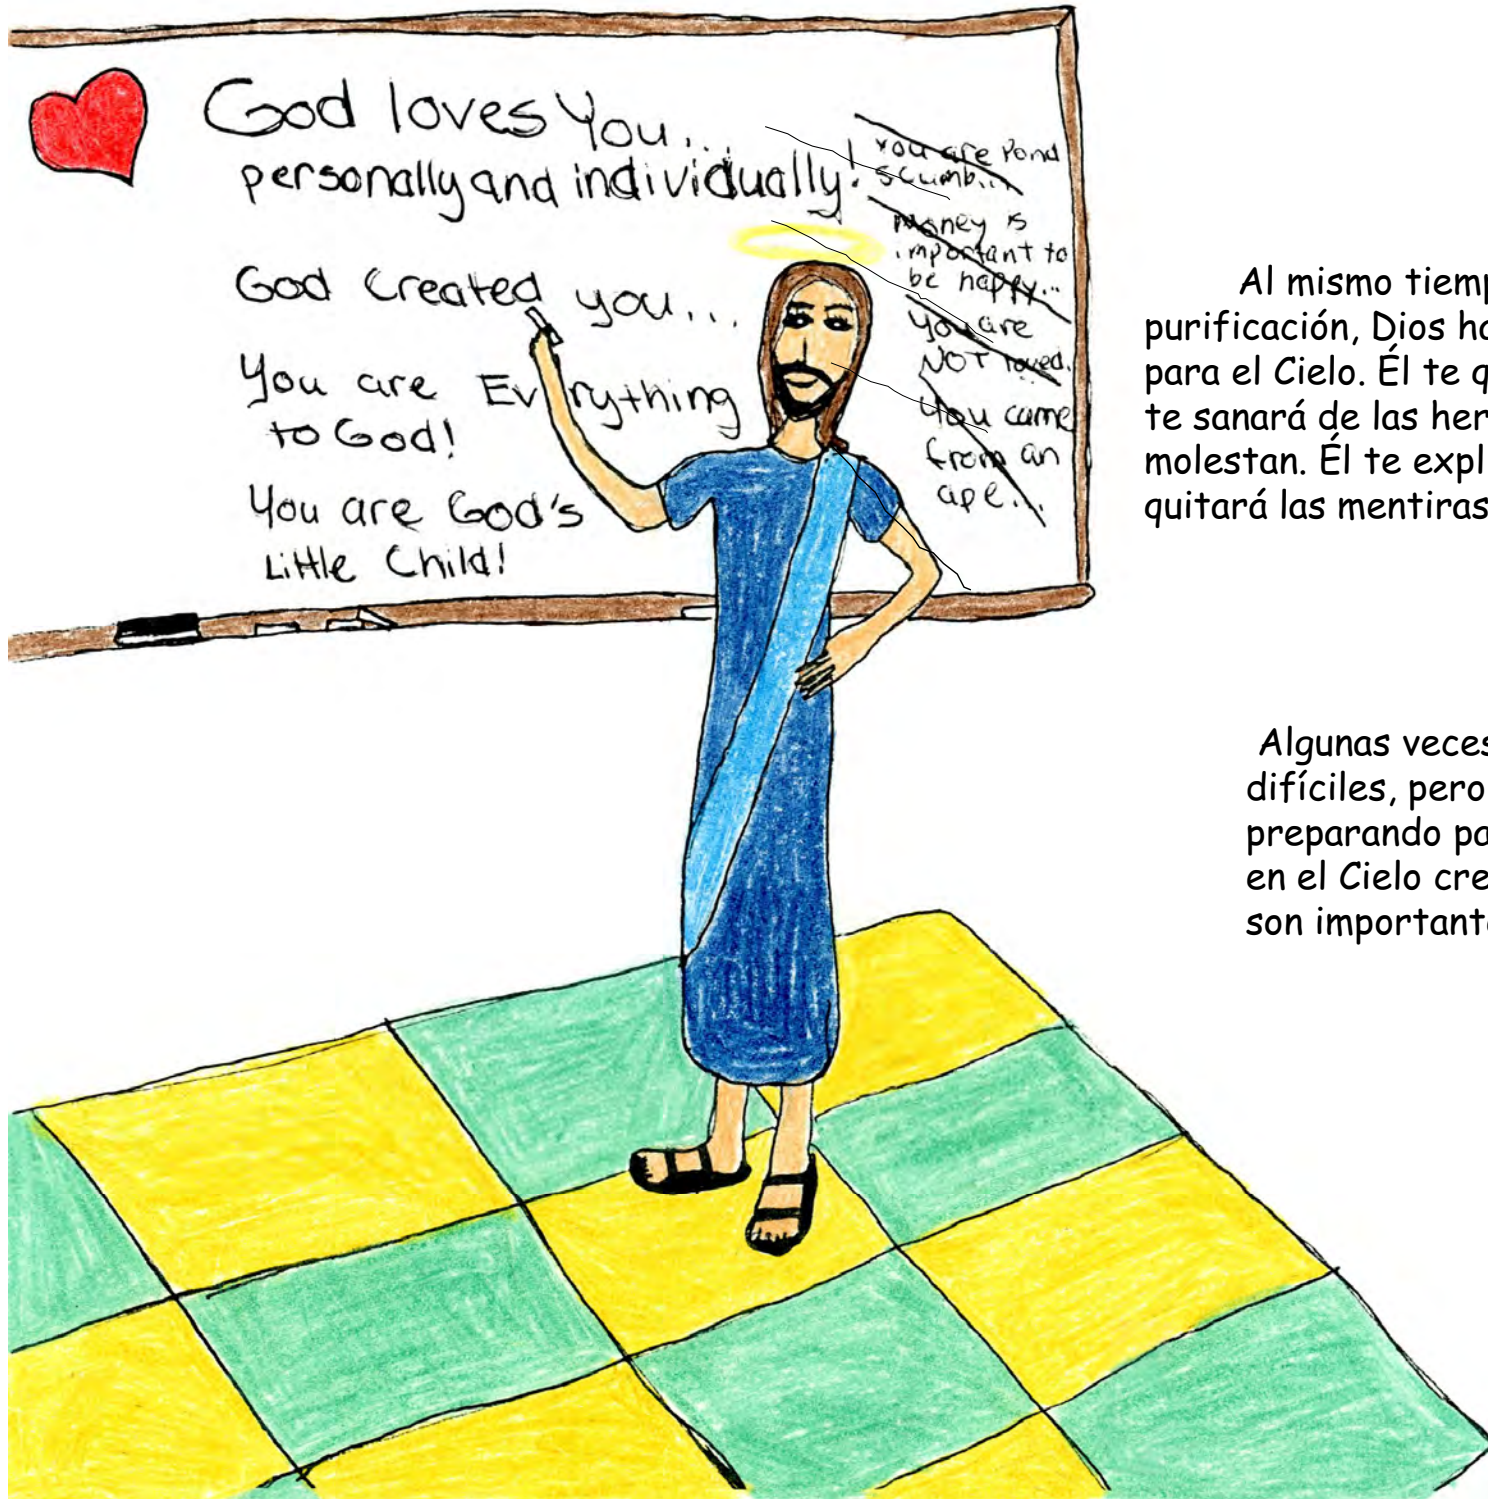 God loves You...
personally and individually!
God created you...
You are Everything
to God!
You are God's
Little Child!
You are Pond
scumb...
money is
important to
be happy...
you are
NOT loved.
You came
from an
ape...
Al mismo tiemp
purificación, Dios ha
para el Cielo. Él te q
te sanará de las her
molestan. Él te expl
quitará las mentiras
Algunas veces
difíciles, pero
preparando pa
en el Cielo cre
son important